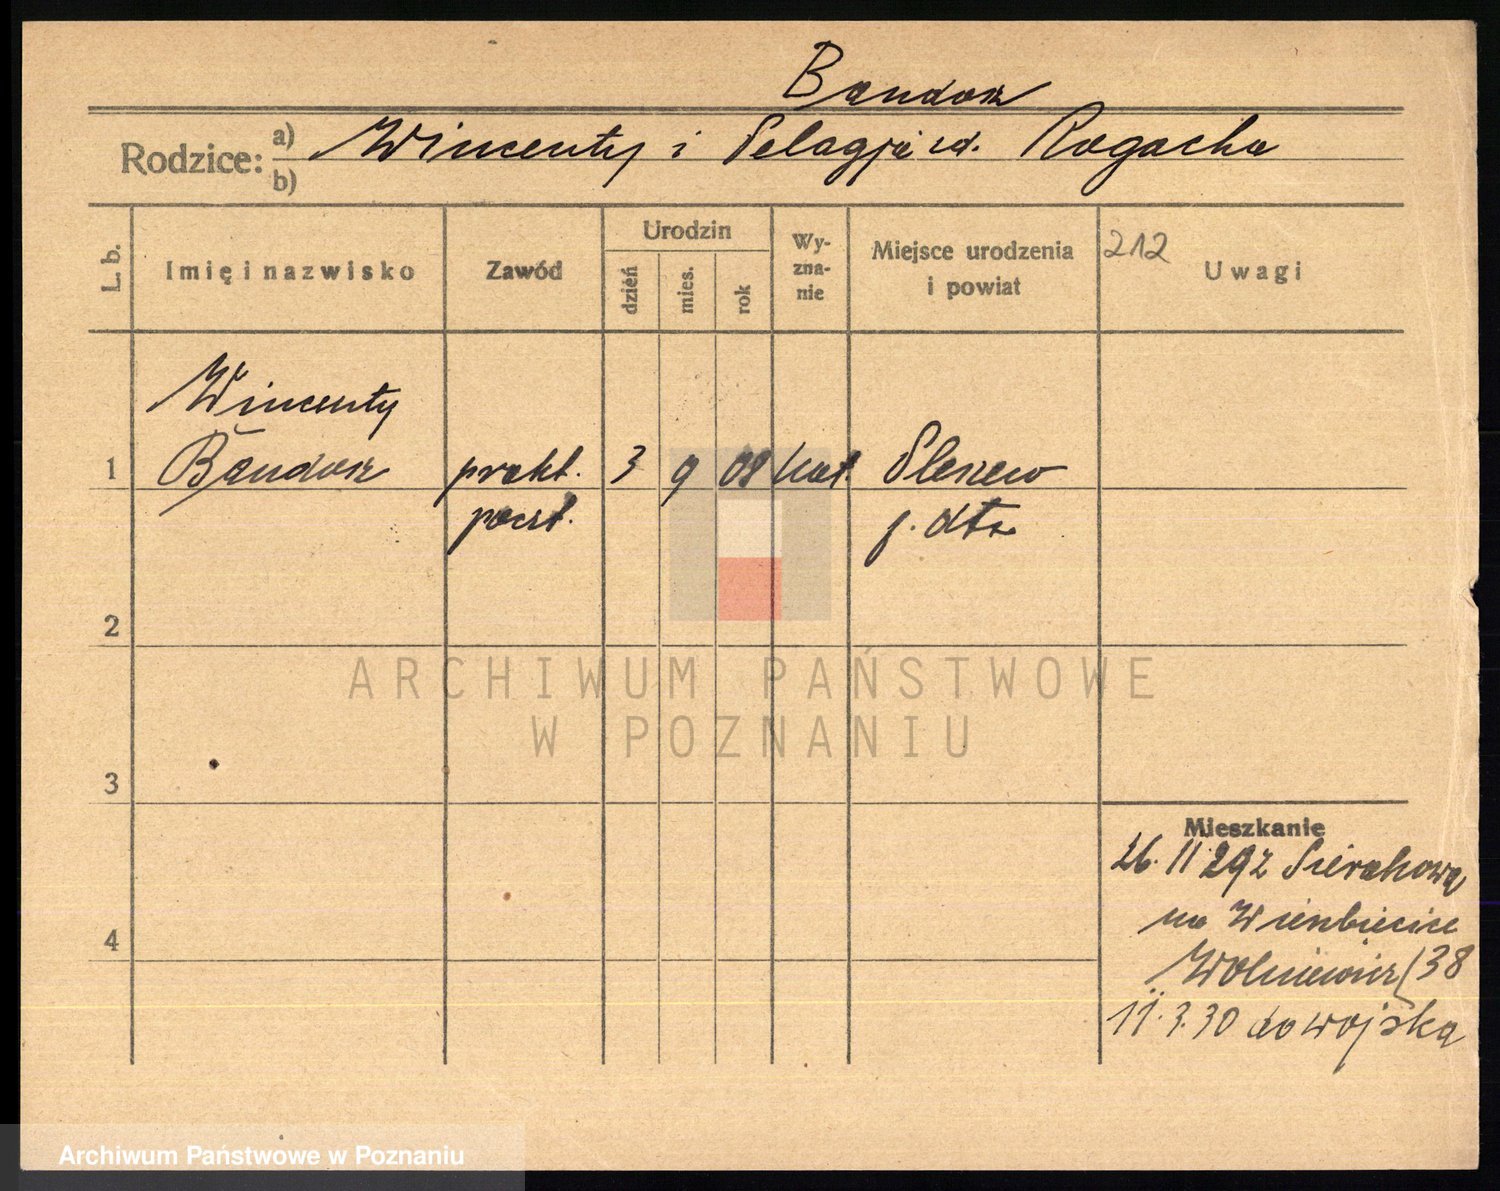 Bandosz
Rodzice: a) Wincenty i Pelagja zd. Rogacka
b)
L. b.
Imię i nazwisko
Zawód
Urodzin
dzień
mies.
rok
Wy-
zna-
nie
Miejsce urodzenia
i powiat
212
Uwagi
Wincenty
1 Bandosz prakt. 3 9 08 kat.
poczt.
2
ARCHIWUM PAŃSTWOWE
W POZNANIU
3
Mieszkanie
26. 11 29 z Sierakowa
na Wierzbiecice
4
38
11. 3. 30 do wojska
Archiwum Państwowe w Poznaniu